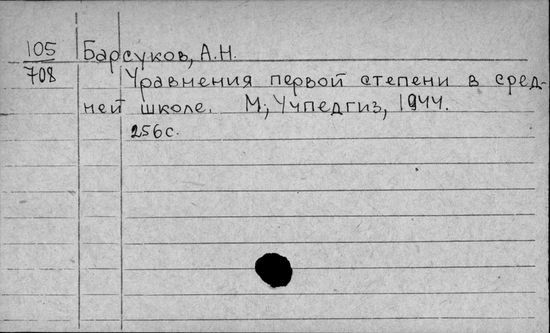 105 Барсуков, А.Н.
708 Уравнения первой степени в сред-
ней школе. М., Учпедгиз, 1944.
256с.